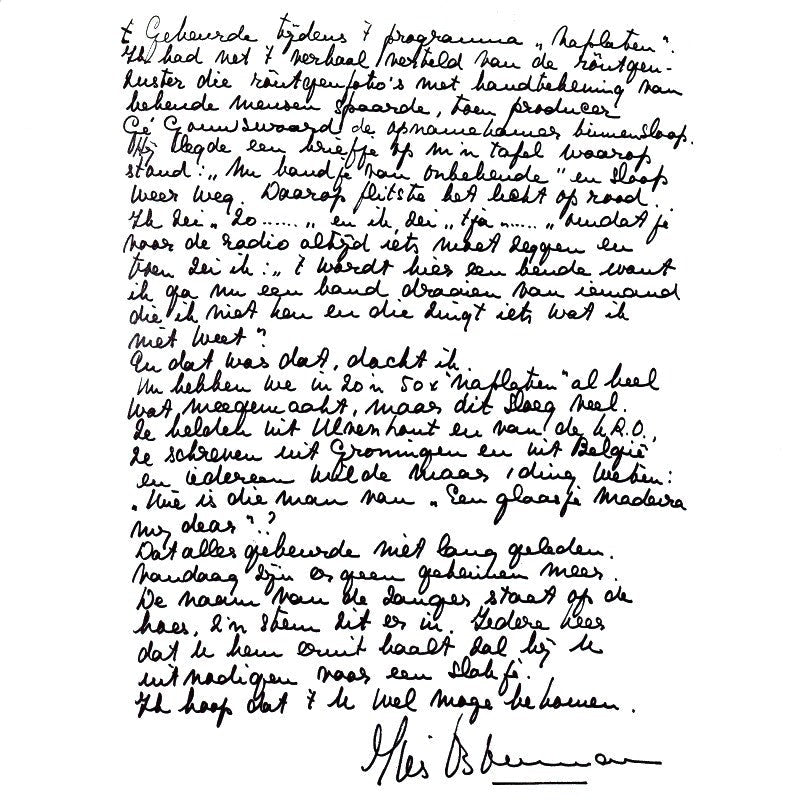 't Gebeurde tijdens 't programma „Naplaten".
Ik had net 't verhaal verteld van de röntgen-
zuster die röntgenfoto's met handtekening van
bekende mensen spaarde, toen producer
Gé Gouwswaard de opnamekamer binnensloop.
Hij legde een briefje op m'n tafel waarop
stond: „Nu bandje van onbekende" en sloop
weer weg. Daarop flitste het licht op rood.
Ik zei „zo......„ en ik zei „tja......„ omdat je
voor de radio altijd iets moet zeggen en
toen zei ik: „'t wordt hier een bende want
ik ga nu een band draaien van iemand
die ik niet ken en die zingt iets wat ik
niet weet".
En dat was dat, dacht ik.
Nu hebben we in zo'n 50x "Naplaten" al heel
wat meegemaakt, maar dit sloeg veel.
Ze belden uit Ulvenhout en van de K.R.O.,
Ze schreven uit Groningen en uit België
en iedereen wilde maar 1 ding weten:
„Wie is die man van „Een glaasje Madeira
my dear"?
Dat alles gebeurde niet lang geleden.
Vandaag zijn er geen geheimen meer.
De naam van de zanger staat op de
hoes, z'n stem zit er in. Iedere keer
dat u hem eruit haalt zal hij u
uitnodigen voor een slokje.
Ik hoop dat 't u wel moge bekomen.